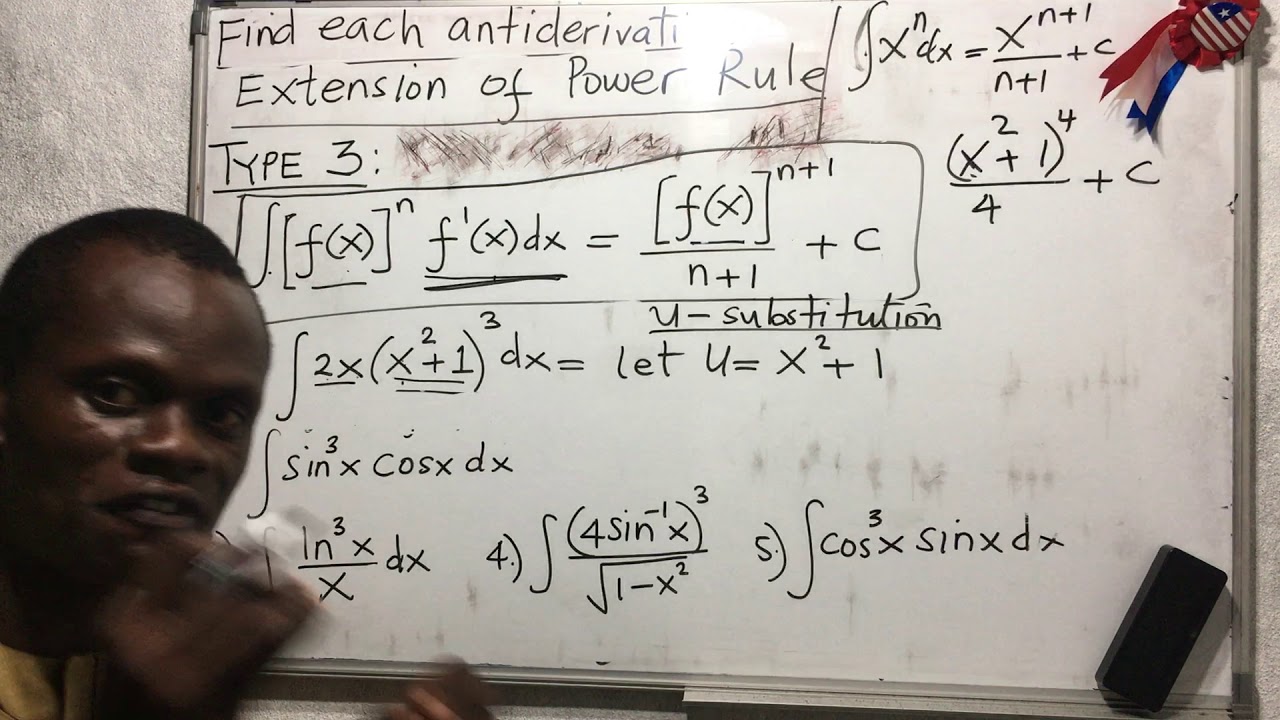 Find each antiderivati
Extension of Power Rule
∫xⁿdx = xⁿ⁺¹/n+1 + c
TYPE 3:
∫[f(x)]ⁿ f'(x)dx = [f(x)]ⁿ⁺¹/n+1 + c
(x²+1)⁴/4 + c
u-substitution
∫2x(x²+1)³dx = let u = x²+1
∫sin³x cosx dx
∫ln³x/x dx
4.) ∫(4sin⁻¹x)³/√1-x²
5.) ∫cos³x sinx dx